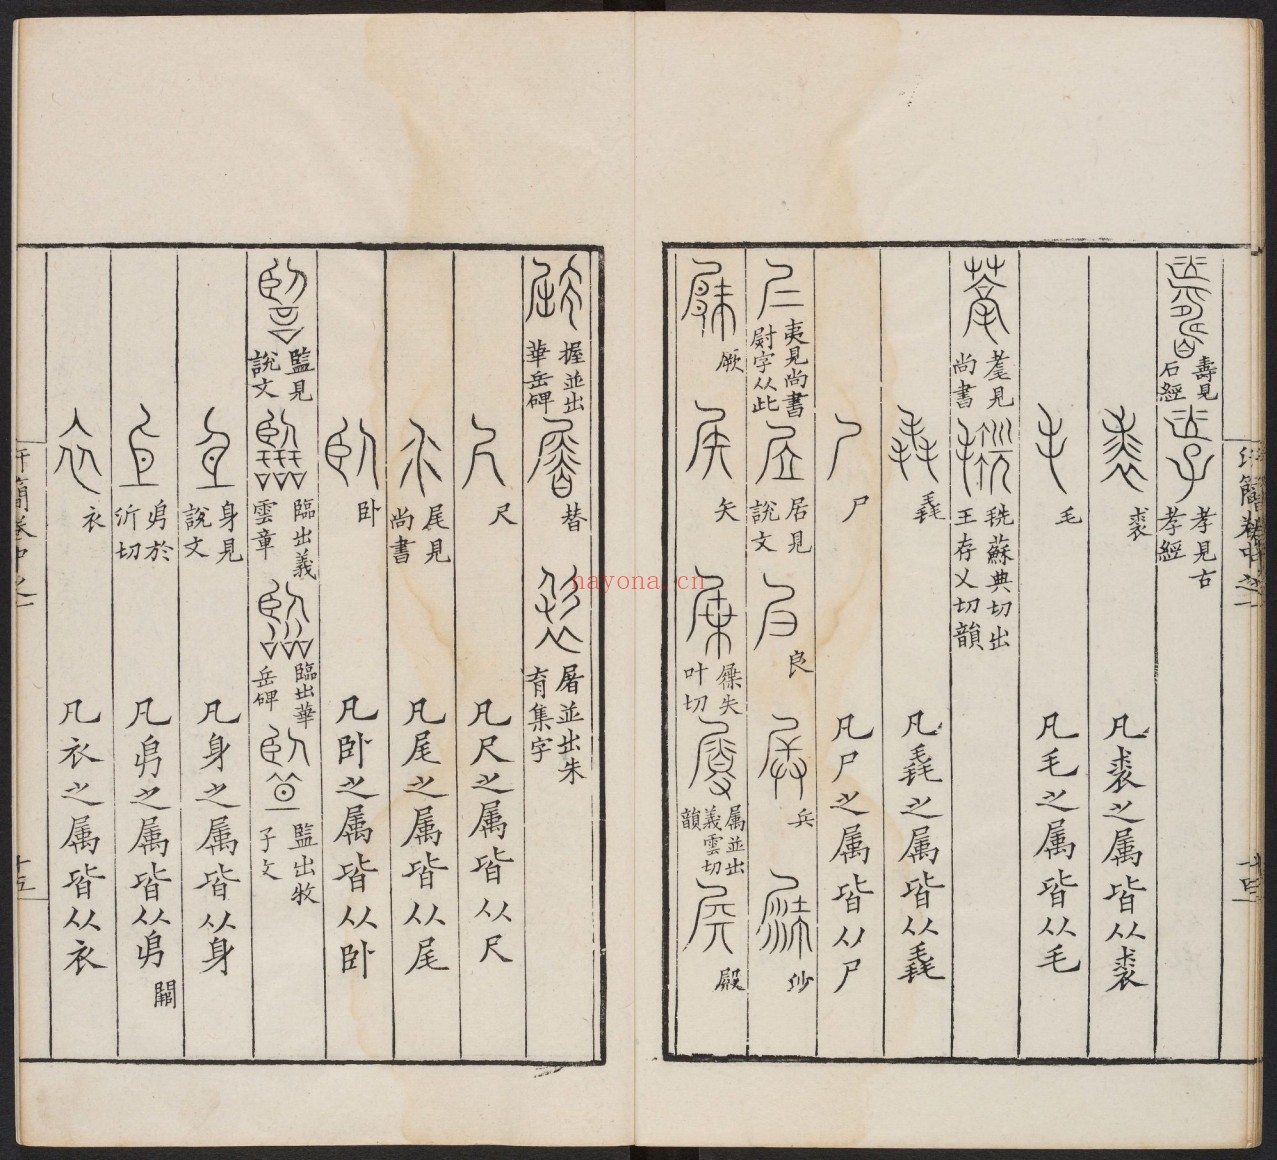 壽見石經
孝見古孝經
裘
凡裘之属皆从裘
毛
凡毛之属皆从毛
耄見尚書
毨蘇典切出王存乂切韻
毳
凡毳之属皆从毳
尸
凡尸之属皆从尸
夷見尚書尉字从此
居見說文
良
兵
厥
矢
屧失叶切
属並出義雲切韻
殿
汗簡卷中之一
十四
握並出華岳碑
朁
屠並出朱育集字
尺
凡尺之属皆从尺
尾見尚書
凡尾之属皆从尾
卧
凡卧之属皆从卧
監見說文
臨出義雲章
臨出華岳碑
監出牧子文
身見說文
凡身之属皆从身
㐆於斤切
凡㐆之属皆从㐆
闕
衣
凡衣之属皆从衣
汗簡卷中之一
十五
nayona.cn